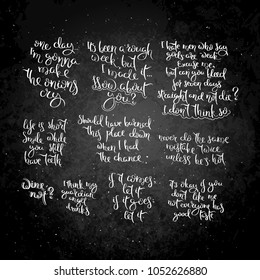 one day
i'm gonna
make
the onions
cry
It's been a rough
week but
I made it...
How about
you?
I hate men who say
girls are weak
Excuse me,
but can you bleed
for seven days
straight and not die?
I don't think so.
Life is short
smile while
you still
have teeth
Should have burned
this place down
when I had
the chance.
never do the same
mistake twice
unless he's hot
Wine
not?
I think my
guardian
angel
drinks
if it comes,
let it
if it goes,
let it
it's okay if you
don't like me
not everyone has
good taste
shutterstock.com · 1052626880